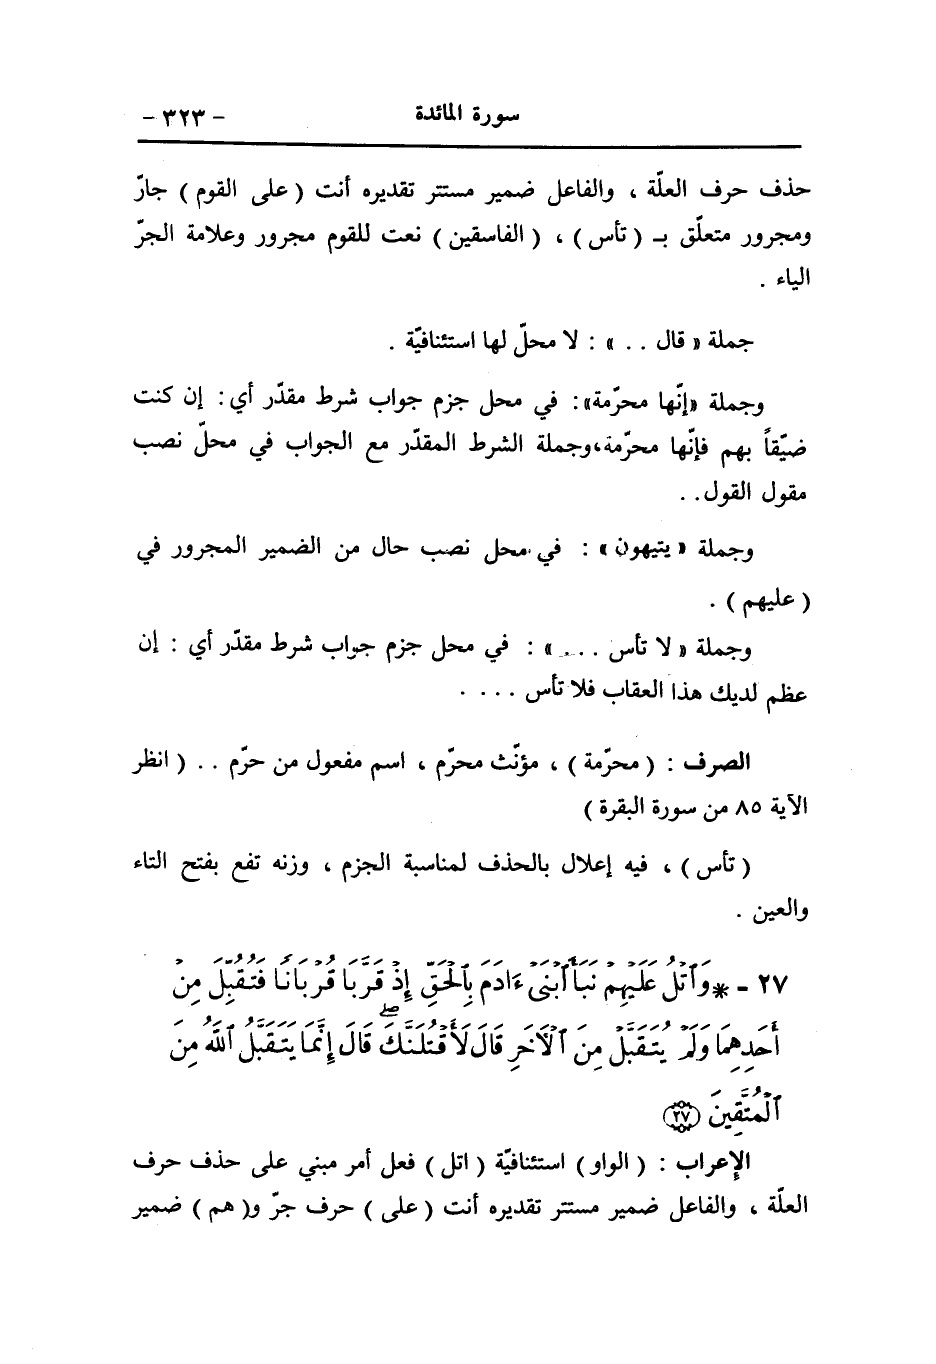 سورة المائدة - ٣٢٣ -
حذف حرف العلّة ، والفاعل ضمير مستتر تقديره أنت ( على القوم ) جارّ
ومجرور متعلّق بـ ( تأس ) ، ( الفاسقين ) نعت للقوم مجرور وعلامة الجرّ
الياء .
جملة « قال . . » : لا محلّ لها استئنافيّة .
وجملة «إنّها محرّمة»: في محل جزم جواب شرط مقدّر أي: إن كنت
ضيّقاً بهم فإنّها محرّمة،وجملة الشرط المقدّر مع الجواب في محلّ نصب
مقول القول. .
وجملة « يتيهون » : في محل نصب حال من الضمير المجرور في
( عليهم ) .
وجملة « لا تأس . . . » : في محل جزم جواب شرط مقدّر أي : إن
عظم لديك هذا العقاب فلا تأس . . . .
الصرف : ( محرّمة ) ، مؤنّث محرّم ، اسم مفعول من حرّم . . ( انظر
الآية ٨٥ من سورة البقرة )
( تأس ) ، فيه إعلال بالحذف لمناسبة الجزم ، وزنه تفع بفتح التاء
والعين .
٢٧ - * وَٱتْلُ عَلَيْهِمْ نَبَأَ ٱبْنَىْ ءَادَمَ بِٱلْحَقِّ إِذْ قَرَّبَا قُرْبَانًا فَتُقُبِّلَ مِنْ
أَحَدِهِمَا وَلَمْ يُتَقَبَّلْ مِنَ ٱلْآخَرِ قَالَ لَأَقْتُلَنَّكَ ۖ قَالَ إِنَّمَا يَتَقَبَّلُ ٱللَّهُ مِنَ
ٱلْمُتَّقِينَ ﴿٢٧﴾
الإعراب : ( الواو ) استئنافيّة ( اتل ) فعل أمر مبني على حذف حرف
العلّة ، والفاعل ضمير مستتر تقديره أنت ( على ) حرف جرّ و( هم ) ضمير